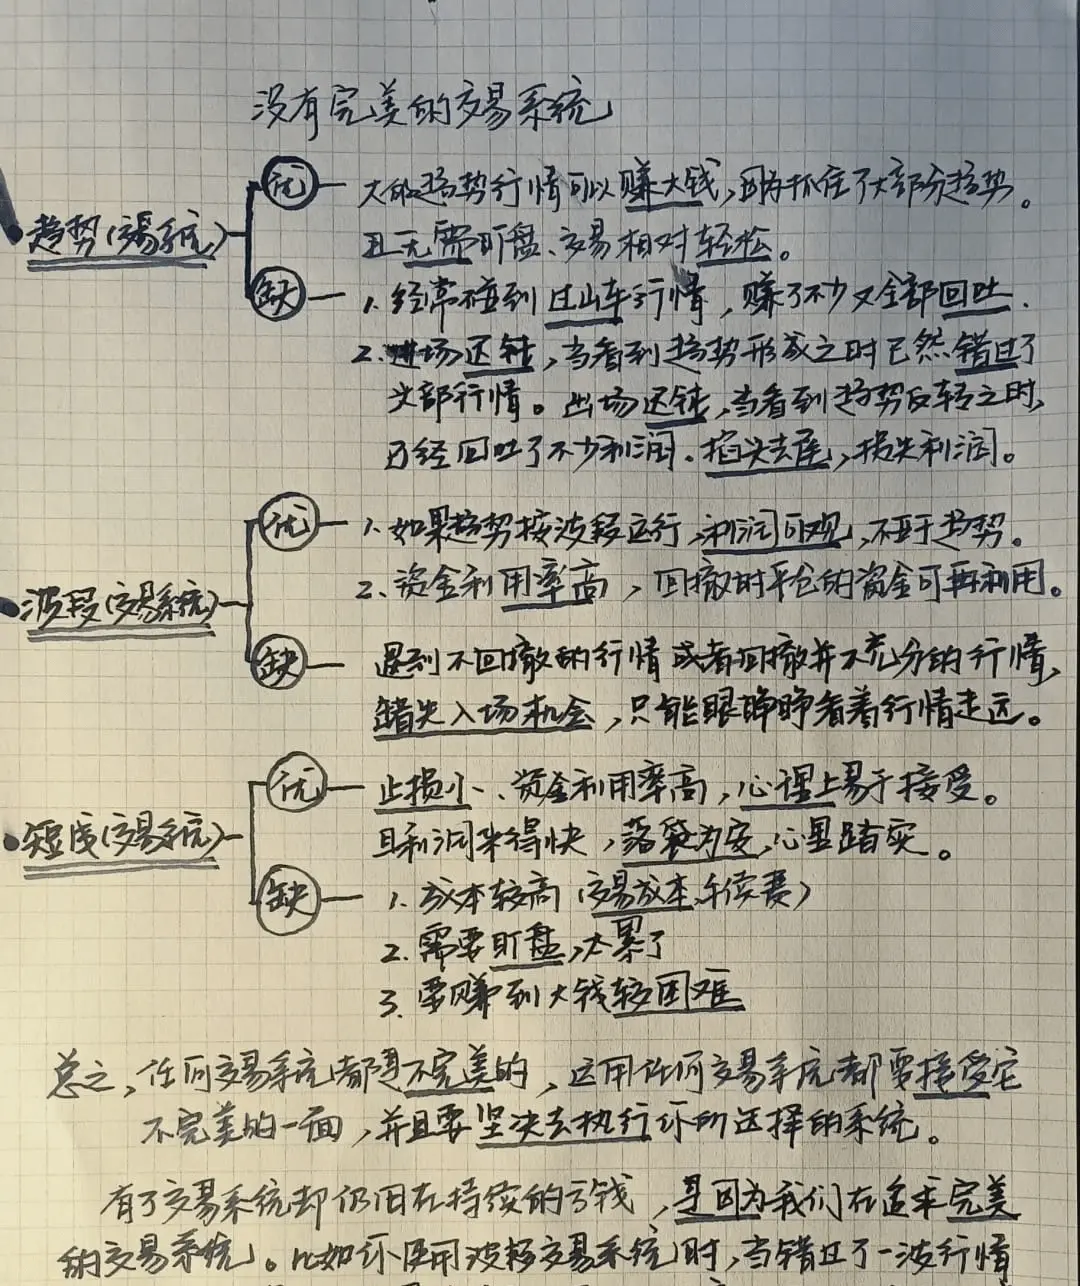 没有完美的交易系统
优 — 大的趋势行情可以赚大钱,因为抓住了大部分趋势。
趋势(交易系统)
且无需盯盘、交易相对轻松。
缺 — 1、经常碰到过山车行情,赚了不少又全部回吐.
2、进场迟钝,当看到趋势形成之时已然错过了
头部行情。出场迟钝,当看到趋势反转之时,
已经回吐了不少利润。掐头去尾,损失利润。
优 — 1、如果趋势按波段运行,利润可观,不亚于趋势。
2、资金利用率高,回撤时平仓的资金可再利用。
波段(交易系统)
缺 — 遇到不回撤的行情或者回撤并不充分的行情,
错失入场机会,只能眼睁睁看着行情走远。
优 — 止损小、资金利用率高,心理上易于接受。
短线(交易系统)
且利润来得快,落袋为安,心里踏实。
缺 — 1、成本较高(交易成本,手续费)
2、需要盯盘,太累了
3、要赚到大钱较困难
总之,任何交易系统都是不完美的,运用任何交易系统都要接受它
不完美的一面,并且要坚决去执行你所选择的系统。
有了交易系统却仍旧在持续的亏钱,是因为我们在追求完美
的交易系统。比如你使用波段交易系统时,当错过了一波行情